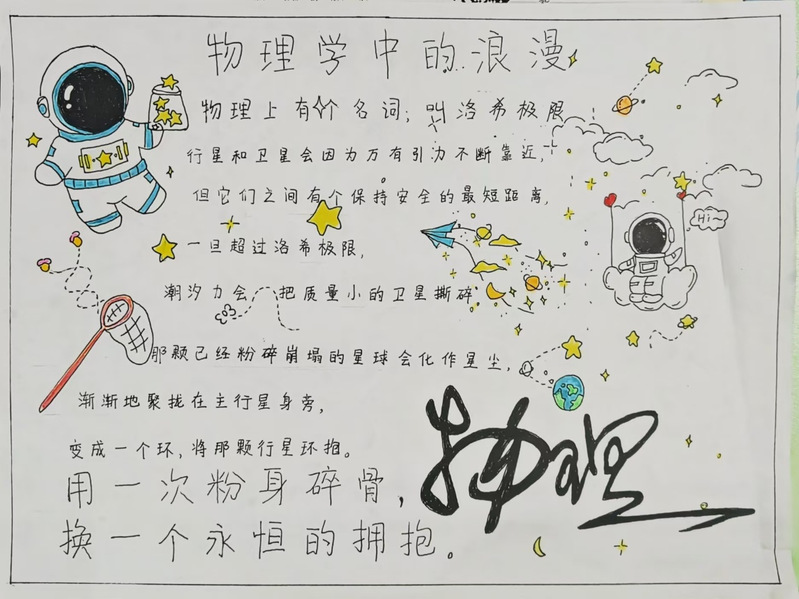 物理学中的浪漫
物理上有个名词；叫洛希极限
行星和卫星会因为万有引力不断靠近，
但它们之间有个保持安全的最短距离，
一旦超过洛希极限，
潮汐力会把质量小的卫星撕碎
那颗已经粉碎崩塌的星球会化作星尘，
渐渐地聚拢在主行星身旁，
变成一个环，将那颗行星环抱。
用一次粉身碎骨，
换一个永恒的拥抱。
物理
Hi~